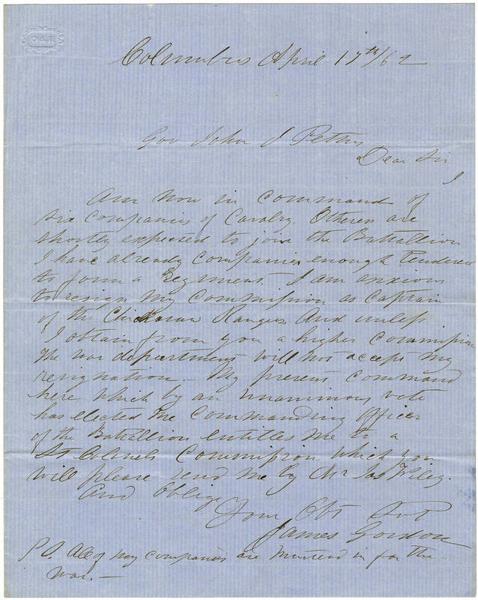 Columbus April 17th/62
Gov John J Pettus
Dear Sir
I
Am now in command of
six companies of Cavalry Others are
shortly expected to join the Battallion
I have already companies enough tendered
to form a Regiment. I am anxious
to resign my commission as Captain
of the Chickasaw Rangers And unless
I obtain from you a higher commission
the war department will not accept my
resignation. My present command
here which by an unanimous vote
has elected me commanding Officer
of the Battallion entitles me to a
Lt Colonels Commission which you
will please send me by Mr Jas
And Oblige
Your Obt Svt
James Gordon
P.S. All of my companies are mustered in for the
war.—